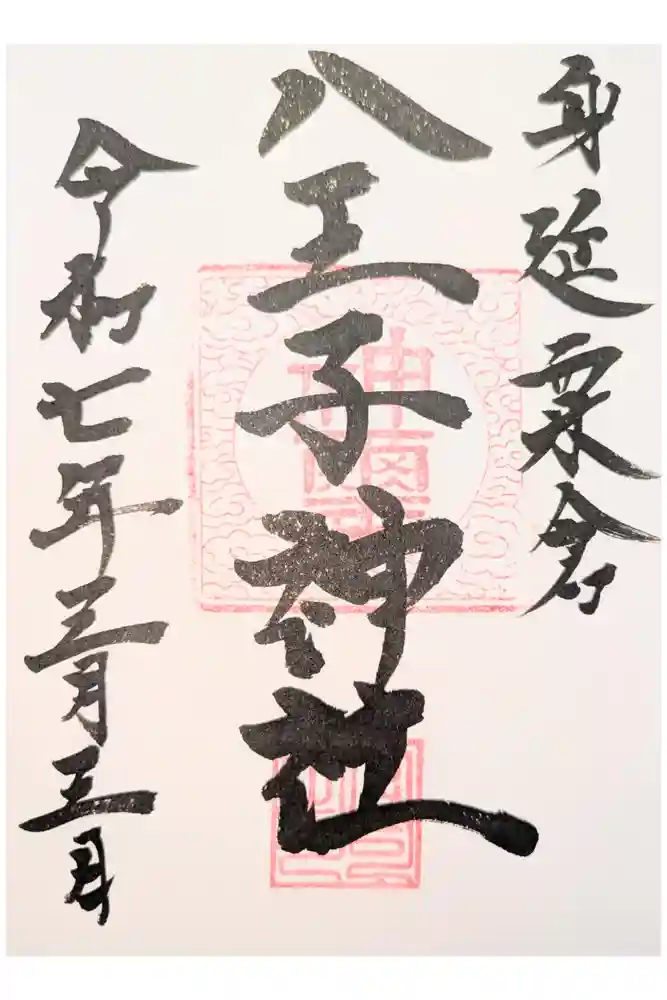 身延粟倉
八王子神社
令和七年三月三日